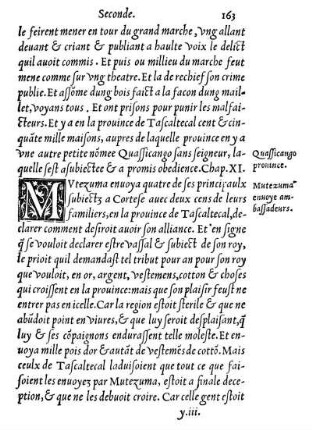 Seconde. 163
le feirent mener en tour du grand marche, vng allant
deuant & criant & publiant a haulte voix le delict
quil auoit commis. Et puis ou millieu du marche feut
mene comme sur vng theatre. Et la de rechief son crime
publie. Et assōme dung bois faict a la facon dung mail-
let, voyans tous. Et ont prisons pour punir les malfai-
cteurs. Et y a en la prouince de Tascaltecal cent & cin-
quāte mille maisons, aupres de laquelle prouince en y a
vne autre petite nōmee Quassicango sans seigneur, la-
quelle sest asubiectee & a promis obedience. Chap. XI.
Quassicango
prouince.
MVtezuma enuoya quatre de ses principaulx
subiects a Cortese auec deux cens de leurs
familiers, en la prouince de Tascaltecal, de-
Mutezuma
enuoye am-
bassadeurs.
clarer comment desiroit auoir son alliance. Et en signe
q̄ se vouloit declarer estre vassal & subiect de son roy,
le prioit quil demandast tel tribut pour an pour son roy
que vouloit, en or, argent, vestemens, cotton & choses
qui croissent en la prouince: mais que son plaisir feust ne
entrer pas en icelle. Car la region estoit sterile & que ne
abūdoit point en viures, & que luy seroit desplaisant, q̄
luy & ses cōpaignons endurassent telle moleste. Et en-
uoya mille pois dor & autāt de vestemēs de cottō. Mais
ceulx de Tascaltecal laduisoient que tout ce que fai-
soient les enuoyez par Mutezuma, estoit a finale dece-
ption, & que ne les debuoit croire. Car celle gent estoit
y.iii.